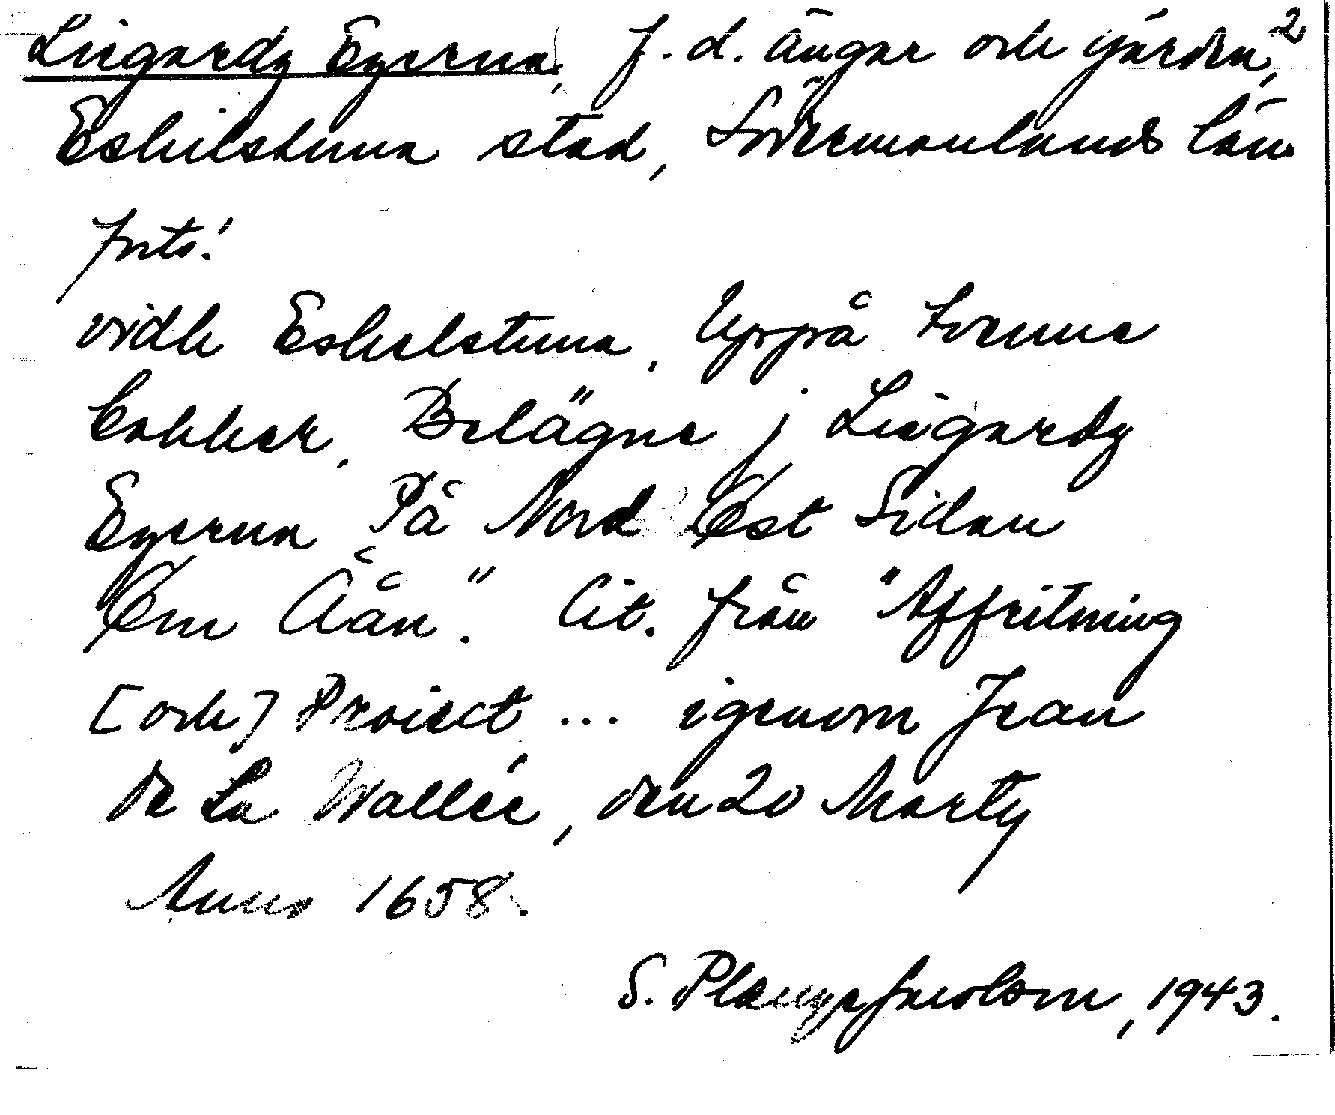 Liegardz Egerna, f.d. ängar och gärden, 2
Eskilstuna stad, Södermanlands län
forts.
vidh Eskelstuna, Uppå Trenne
Backer, Belägne j Liegardz
Egerna På Nord Öst Sidan
Om Åån". Cit. från "Affritning
[och] Proiect ... igenom Jean
de La Wallée, den 20 Marty
Anno 1658.
S. 1943.